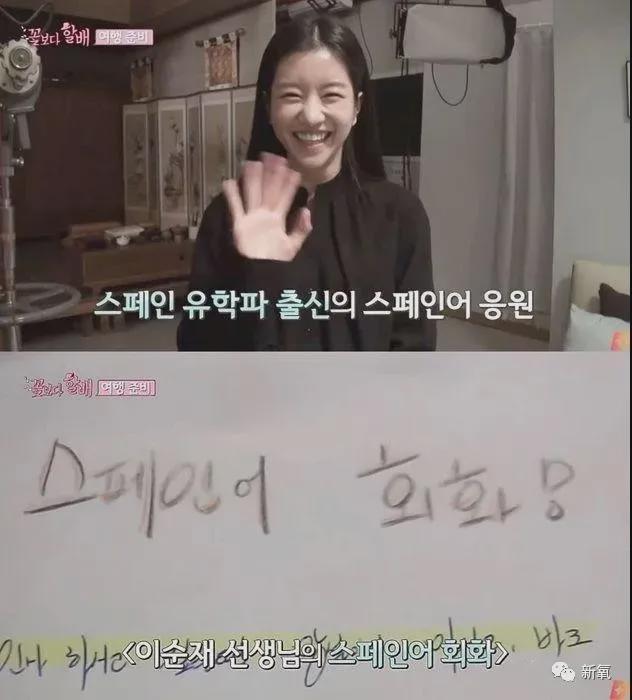 꽃보다 할배 여행 준비
스페인 유학파 출신의 스페인어 응원
꽃보다 할배 여행 준비
스페인어 회화
하시고
바로
<이순재 선생님의 스페인어 회화>
新氧